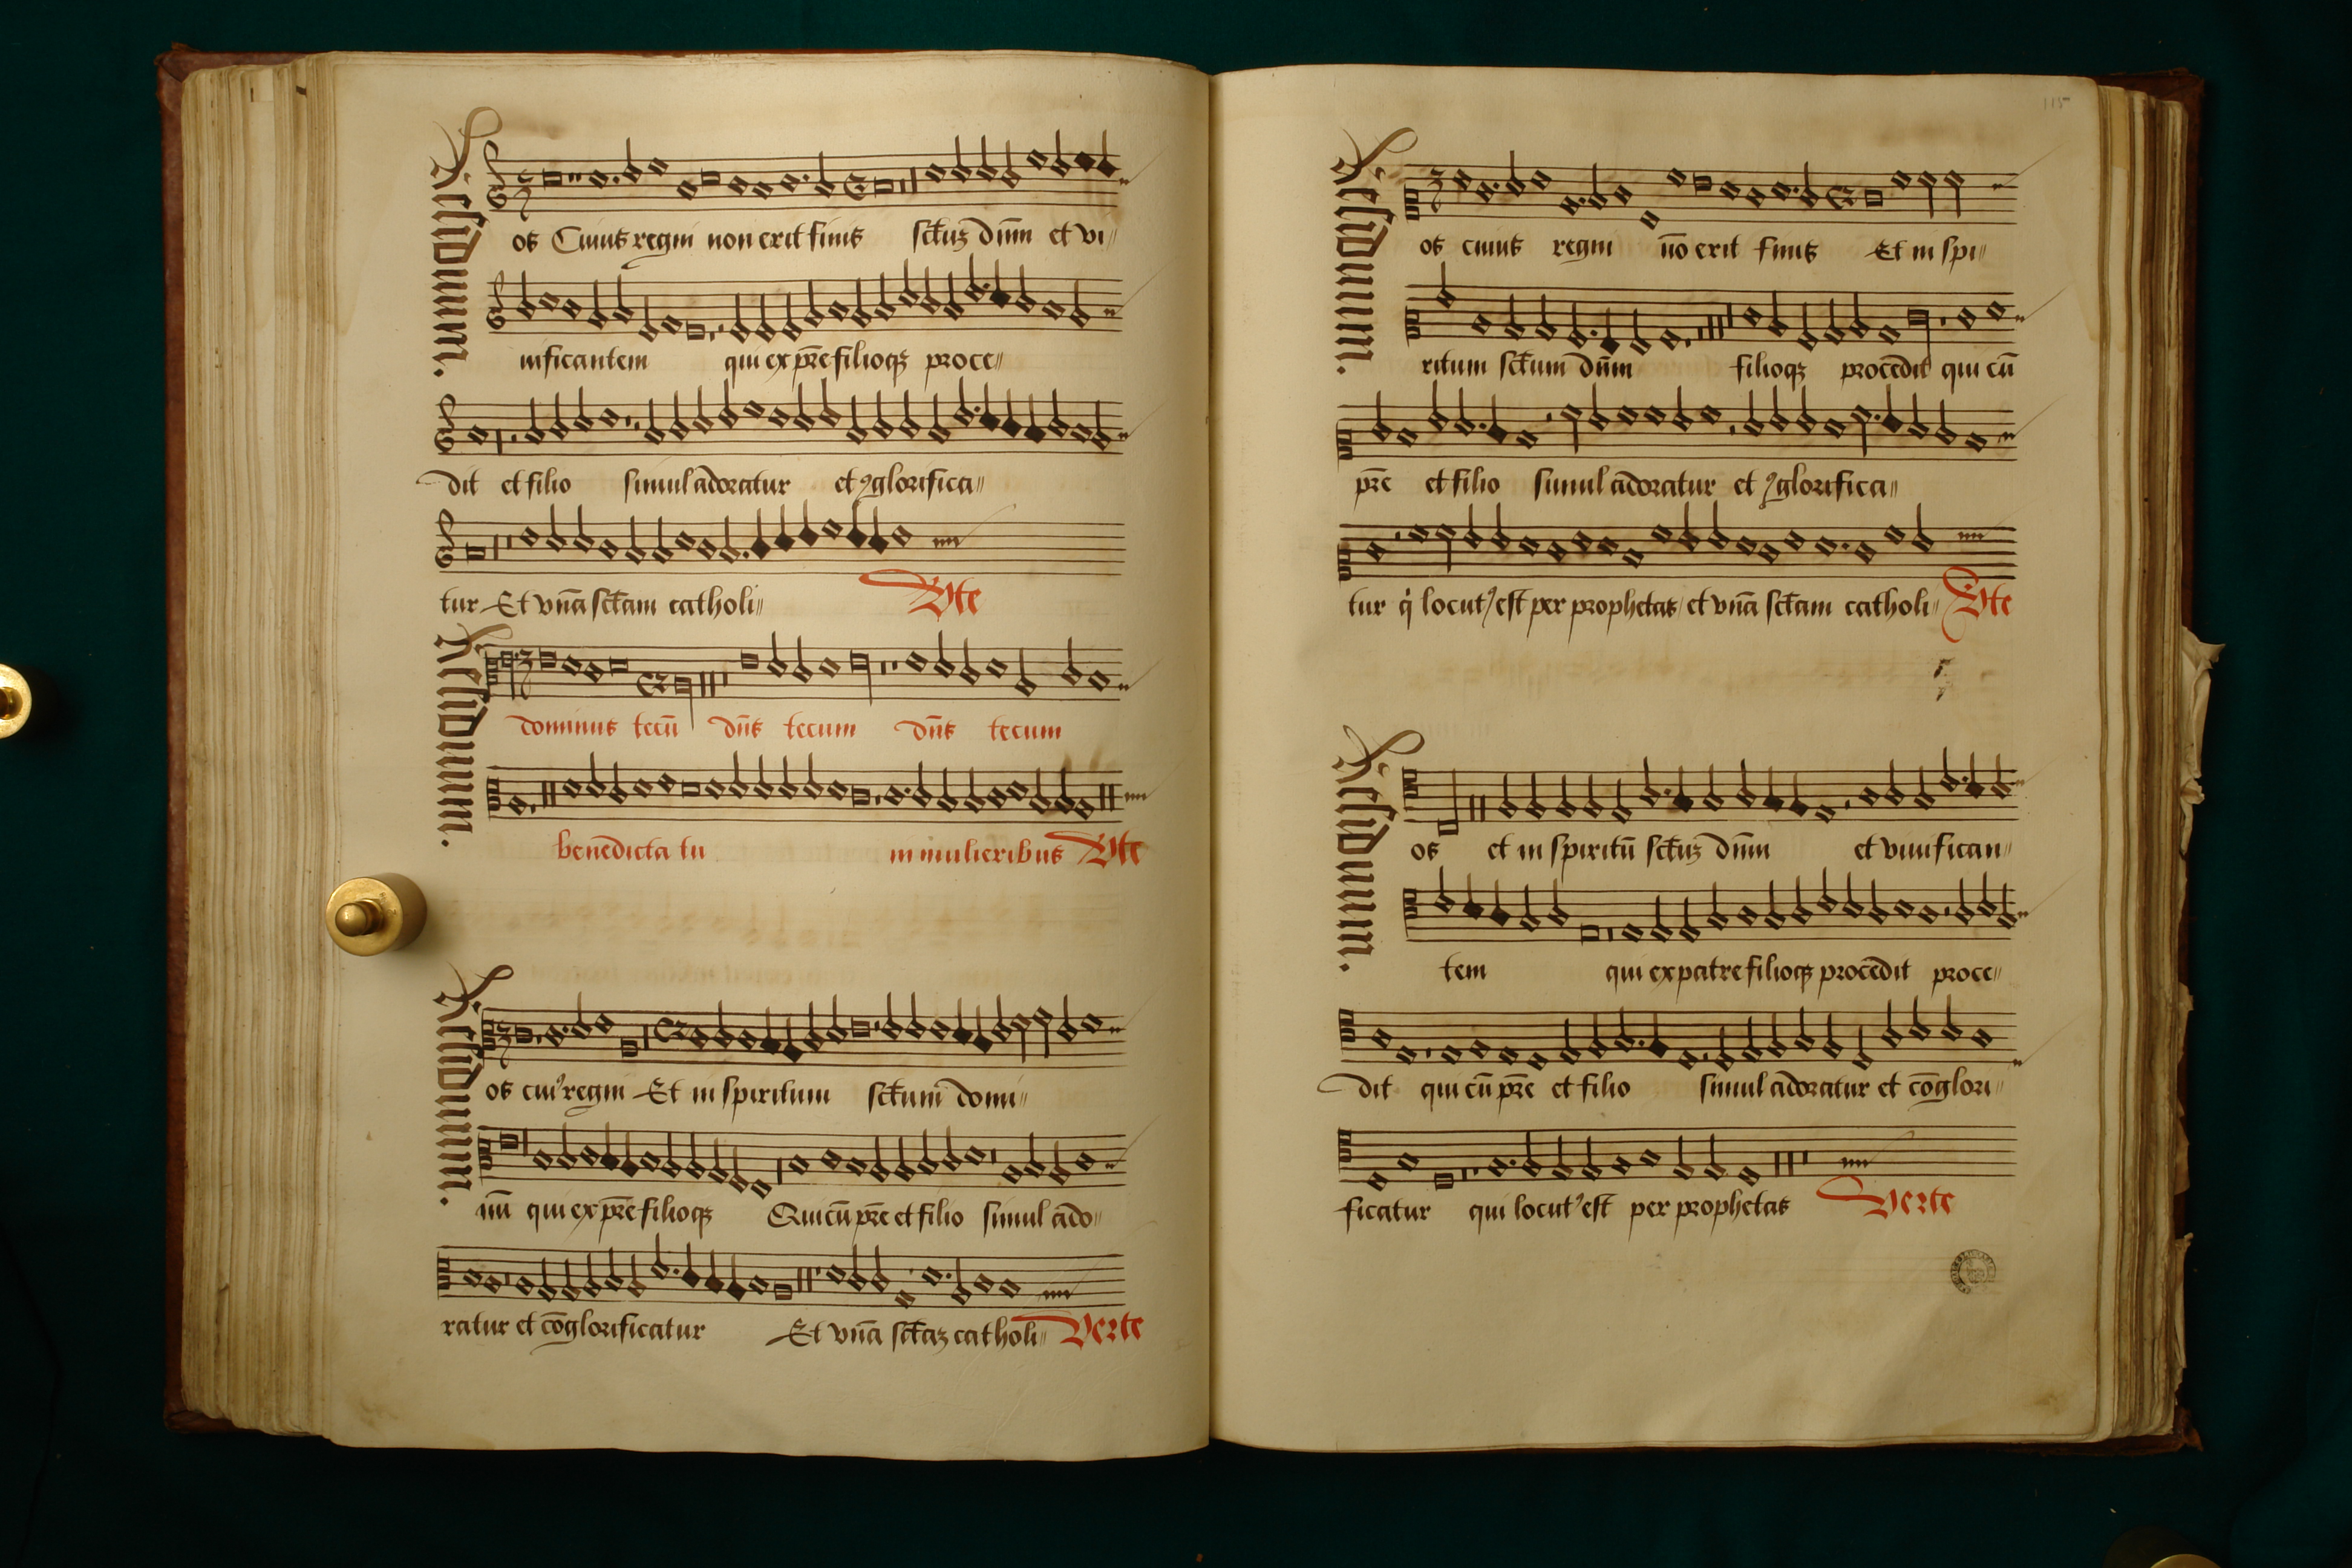 Residuum.
os Cuius regni non erit finis sctuʒ dn̄m et vi〃
uificantem qui ex pr̄e filioqʒ proce〃
dit et filio simul adoratur et ꝯglorifica〃
tur Et vnā sctam catholi〃 Vte
Residuum.
dominus tecū dn̄s tecum dn̄s tecum
benedicta tu in mulieribus Vte
Residuum.
os cuiꝰ regni Et in spiritum sctum domi〃
nū qui ex pr̄e filioqʒ Qui cū pr̄e et filio simul ado〃
ratur et cōglorificatur Et vnā sctaʒ catholi〃 Verte
115
Residuum.
os cuius regni nō erit finis Et in spi〃
ritum sctum dn̄m filioqʒ procedit qui cū
pr̄e et filio simul adoratur et ꝯglorifica〃
tur q̇ locutꝰ est per prophetas et vnā sctam catholi〃 Vte
Residuum.
os et in spiritū sctuʒ dn̄m et viuifican〃
tem qui ex patre filioqʒ procedit proce〃
dit qui cū pr̄e et filio simul adoratur et cōglori〃
ficatur qui locutꝰ est per prophetas Verte